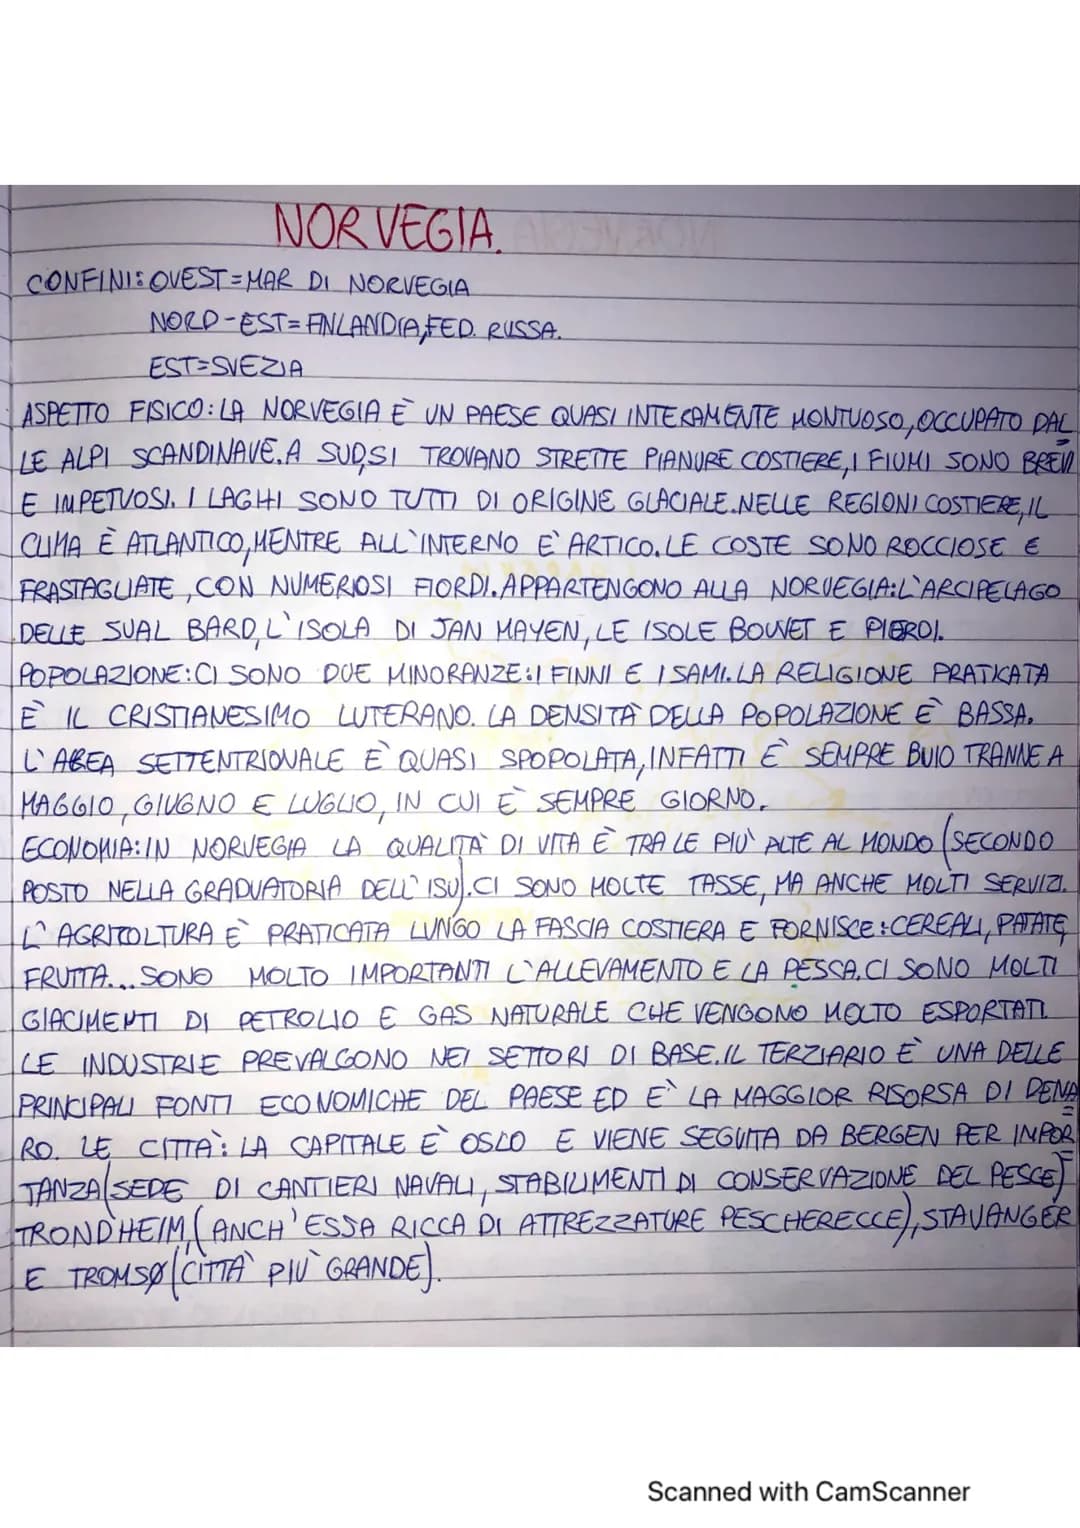 NORVEGIA.
CONFINI: OVEST=MAR DI NORVEGIA
NORD-EST=FINLANDIA, FED. RUSSA.
EST=SVEZIA
ASPETTO FISICO: LA NORVEGIA È UN PAESE QUASI INTERAMENTE MONTUOSO, OCCUPATO DAL
LE ALPI SCANDINAVE. A SUD, SI TROVANO STRETTE PIANURE COSTIERE, I FIUMI SONO BREVI
E IMPETUOSI. I LAGHI SONO TUTTI DI ORIGINE GLACIALE. NELLE REGIONI COSTIERE, IL
CLIMA È ATLANTICO, MENTRE ALL'INTERNO E' ARTICO. LE COSTE SONO ROCCIOSE E
FRASTAGLIATE, CON NUMEROSI FIORDI. APPARTENGONO ALLA NORVEGIA: L'ARCIPELAGO
DELLE SUAL BARD, L'ISOLA DI JAN MAYEN, LE ISOLE BOUVET E PIEROI.
POPOLAZIONE: CI SONO DUE MINORANZE: I FINNI E I SAMI. LA RELIGIONE PRATICATA
È IL CRISTIANESIMO LUTERANO. LA DENSITÀ DELLA POPOLAZIONE È BASSA.
L'AREA SETTENTRIONALE È QUASI SPOPOLATA, INFATTI È SEMPRE BUIO TRANNE A
MAGGIO, GIUGNO E LUGLIO, IN CUI È SEMPRE GIORNO.
ECONOMIA: IN NORVEGIA LA QUALITÀ DI VITA È TRA LE PIÙ ALTE AL MONDO (SECONDO
POSTO NELLA GRADUATORIA DELL'ISU). CI SONO MOLTE TASSE, MA ANCHE MOLTI SERVIZI.
L'AGRICOLTURA È PRATICATA LUNGO LA FASCIA COSTIERA E FORNISCE: CEREALI, PATATE,
FRUTTA... SONO MOLTO IMPORTANTI L'ALLEVAMENTO E LA PESCA. CI SONO MOLTI
GIACIMENTI DI PETROLIO E GAS NATURALE CHE VENGONO MOLTO ESPORTATI.
LE INDUSTRIE PREVALGONO NEI SETTORI DI BASE. IL TERZIARIO È UNA DELLE
PRINCIPALI FONTI ECONOMICHE DEL PAESE ED E' LA MAGGIOR RISORSA DI DENA
RO. LE CITTÀ: LA CAPITALE È OSLO E VIENE SEGUITA DA BERGEN PER IMPOR
TANZA (SEDE DI CANTIERI NAVALI, STABILIMENTI DI CONSERVAZIONE DEL PESCE)
TRONDHEIM, (ANCH'ESSA RICCA DI ATTREZZATURE PESCHERECCE), STAVANGER
E TROMSØ (CITTÀ PIÙ GRANDE).
Scanned with CamScanner